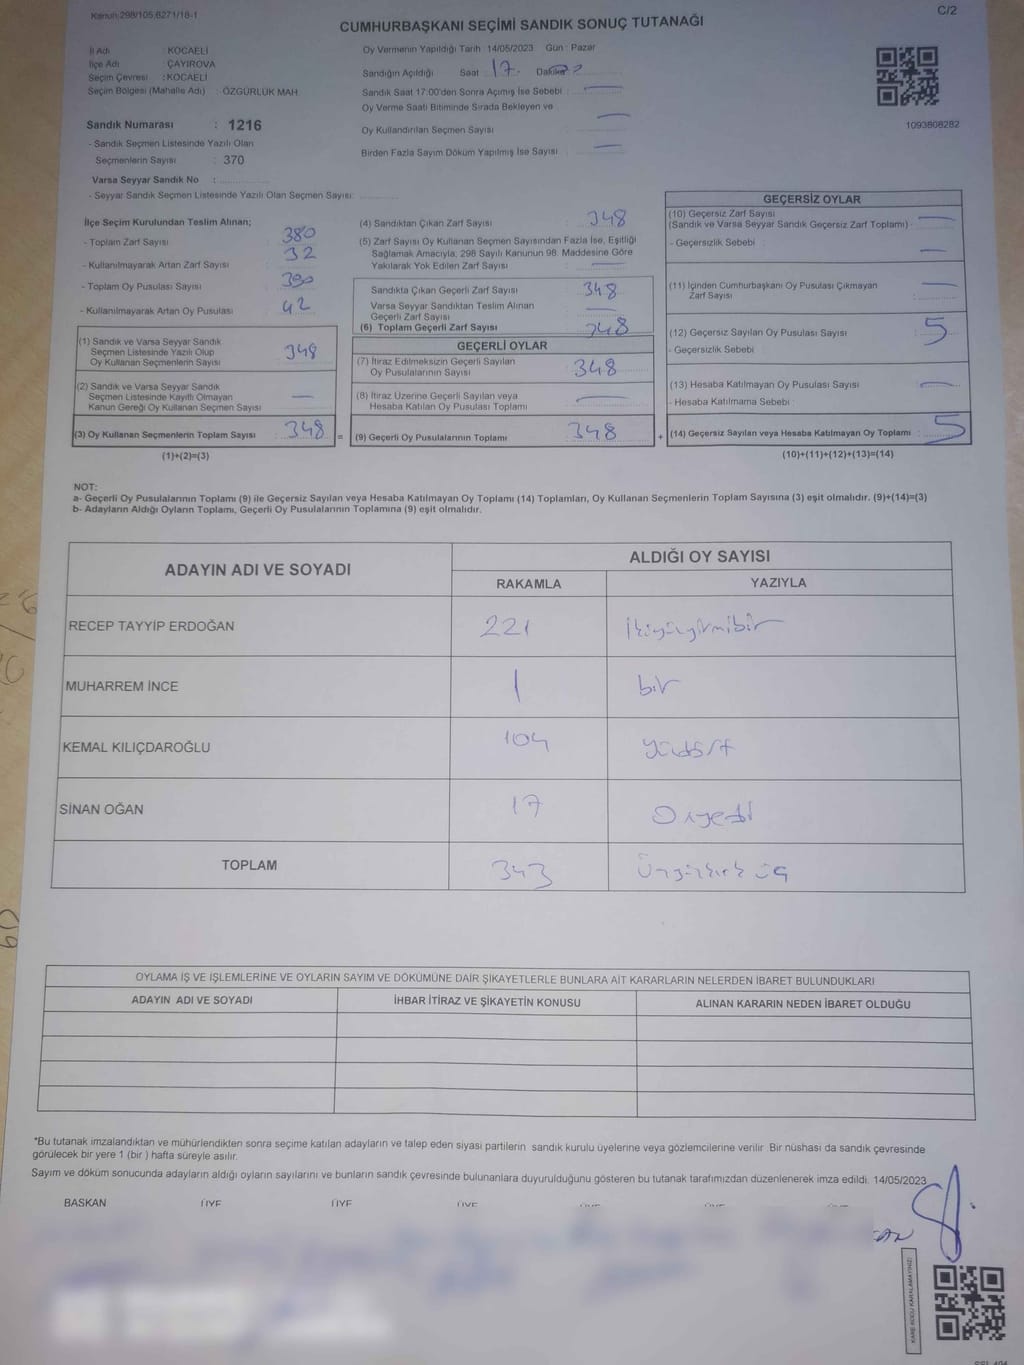 Kanun:298/105,6271/18-1
C/2
CUMHURBAŞKANI SEÇİMİ SANDIK SONUÇ TUTANAĞI
İl Adı : KOCAELİ
İlçe Adı : ÇAYIROVA
Seçim Çevresi : KOCAELİ
Seçim Bölgesi (Mahalle Adı) : ÖZGÜRLÜK MAH.
Sandık Numarası : 1216
- Sandık Seçmen Listesinde Yazılı Olan
Seçmenlerin Sayısı : 370
Varsa Seyyar Sandık No :
- Seyyar Sandık Seçmen Listesinde Yazılı Olan Seçmen Sayısı:
Oy Vermenin Yapıldığı Tarih : 14/05/2023 Gün : Pazar
Sandığın Açıldığı Saat : 17. Dakika :
Sandık Saat 17:00'den Sonra Açımış İse Sebebi :
Oy Verme Saati Bitiminde Sırada Bekleyen ve
Oy Kullandırılan Seçmen Sayısı
Birden Fazla Sayım Döküm Yapılmış İse Sayısı :
1093808282
İlçe Seçim Kurulundan Teslim Alınan;
- Toplam Zarf Sayısı : 380
- Kullanılmayarak Artan Zarf Sayısı : 32
- Toplam Oy Pusulası Sayısı : 390
- Kullanılmayarak Artan Oy Pusulası : 42
(1) Sandık ve Varsa Seyyar Sandık
Seçmen Listesinde Yazılı Olup
Oy Kullanan Seçmenlerin Sayısı : 348
(2) Sandık ve Varsa Seyyar Sandık
Seçmen Listesinde Kayıtlı Olmayan
Kanun Gereği Oy Kullanan Seçmen Sayısı : —
(3) Oy Kullanan Seçmenlerin Toplam Sayısı : 348 =
(1)+(2)=(3)
(4) Sandıktan Çıkan Zarf Sayısı : 348
(5) Zarf Sayısı Oy Kullanan Seçmen Sayısından Fazla İse, Eşitliği
Sağlamak Amacıyla; 298 Sayılı Kanunun 98. Maddesine Göre
Yakılarak Yok Edilen Zarf Sayısı : —
Sandıkta Çıkan Geçerli Zarf Sayısı : 348
Varsa Seyyar Sandıktan Teslim Alınan
Geçerli Zarf Sayısı : —
(6) Toplam Geçerli Zarf Sayısı : 348
GEÇERLİ OYLAR
(7) İtiraz Edilmeksizin Geçerli Sayılan
Oy Pusulalarının Sayısı : 348
(8) İtiraz Üzerine Geçerli Sayılan veya
Hesaba Katılan Oy Pusulası Toplamı : —
(9) Geçerli Oy Pusulalarının Toplamı : 348 +
GEÇERSİZ OYLAR
(10) Geçersiz Zarf Sayısı
(Sandık ve Varsa Seyyar Sandık Geçersiz Zarf Toplamı) : —
- Geçersizlik Sebebi : —
(11) İçinden Cumhurbaşkanı Oy Pusulası Çıkmayan
Zarf Sayısı : —
(12) Geçersiz Sayılan Oy Pusulası Sayısı : 5
- Geçersizlik Sebebi :
(13) Hesaba Katılmayan Oy Pusulası Sayısı : —
- Hesaba Katılmama Sebebi :
(14) Geçersiz Sayılan veya Hesaba Katılmayan Oy Toplamı : 5
(10)+(11)+(12)+(13)=(14)
NOT:
a- Geçerli Oy Pusulalarının Toplamı (9) ile Geçersiz Sayılan veya Hesaba Katılmayan Oy Toplamı (14) Toplamları, Oy Kullanan Seçmenlerin Toplam Sayısına (3) eşit olmalıdır. (9)+(14)=(3)
b- Adayların Aldığı Oyların Toplamı, Geçerli Oy Pusulalarının Toplamına (9) eşit olmalıdır.
ADAYIN ADI VE SOYADI
ALDIĞI OY SAYISI
RAKAMLA YAZIYLA
RECEP TAYYİP ERDOĞAN 221 ikiyüzyirmibir
MUHARREM İNCE 1 bir
KEMAL KILIÇDAROĞLU 104 yüzdört
SİNAN OĞAN 17 Onyedi
TOPLAM 343 Üçyüzkırk üç
OYLAMA İŞ VE İŞLEMLERİNE VE OYLARIN SAYIM VE DÖKÜMÜNE DAİR ŞİKAYETLERLE BUNLARA AİT KARARLARIN NELERDEN İBARET BULUNDUKLARI
ADAYIN ADI VE SOYADI İHBAR İTİRAZ VE ŞİKAYETİN KONUSU ALINAN KARARIN NEDEN İBARET OLDUĞU
*Bu tutanak imzalandıktan ve mühürlendikten sonra seçime katılan adayların ve talep eden siyasi partilerin sandık kurulu üyelerine veya gözlemcilerine verilir. Bir nüshası da sandık çevresinde
görülecek bir yere 1 (bir ) hafta süreyle asılır.
Sayım ve döküm sonucunda adayların aldığı oyların sayılarını ve bunların sandık çevresinde bulunanlara duyurulduğunu gösteren bu tutanak tarafımızdan düzenlenerek imza edildi. 14/05/2023
BAŞKAN ÜYE ÜYE ÜYE ÜYE ÜYE ÜYE
KARE KODU KARALAMAYINIZ!